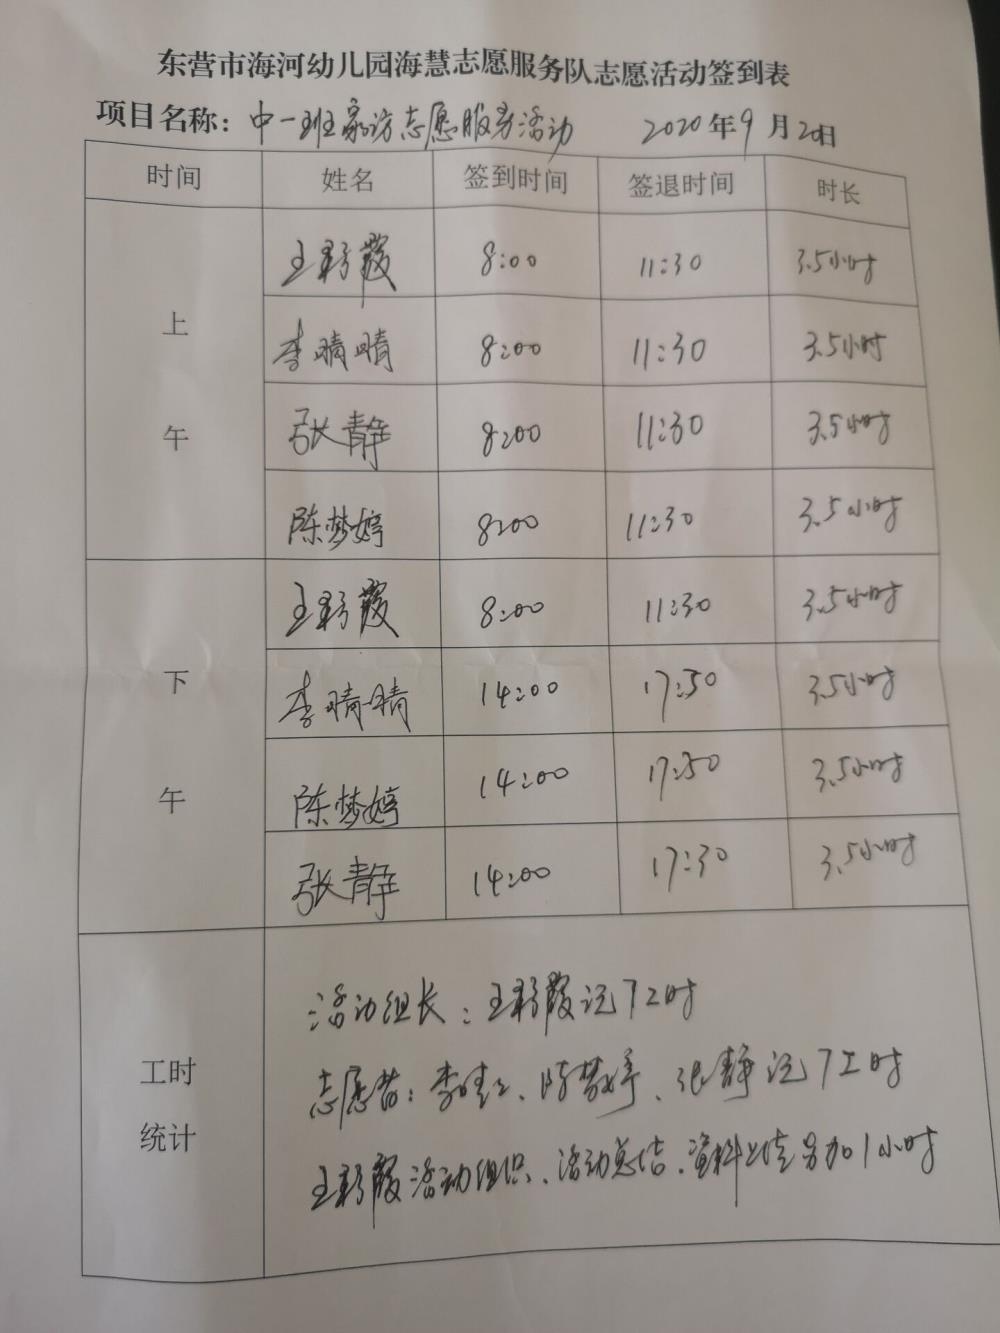 东营市海河幼儿园海慧志愿服务队志愿活动签到表
项目名称：中一班家访志愿服务活动 2020年9月20日
时间 姓名 签到时间 签退时间 时长
上午
王彩霞 8:00 11:30 3.5小时
李晴晴 8:00 11:30 3.5小时
张静 8:00 11:30 3.5小时
陈梦婷 8:00 11:30 3.5小时
下午
王彩霞 8:00 11:30 3.5小时
李晴晴 14:00 17:30 3.5小时
陈梦婷 14:00 17:30 3.5小时
张静 14:00 17:30 3.5小时
工时统计
活动组长：王彩霞记7工时
志愿者：李晴晴、陈梦婷、张静记7工时
王彩霞活动组织、活动总结、资料上传另加1小时